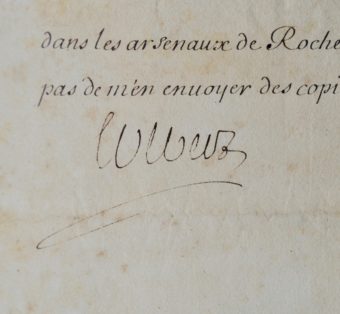 dans les arsenaux de Roche
pas de m'en enuoyer des copi
Colbert